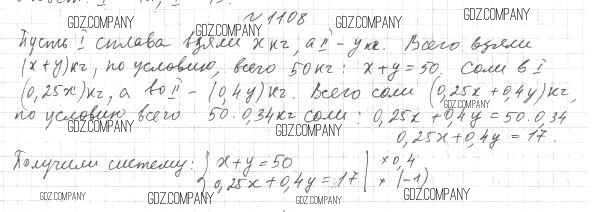 № 1108
GDZ.COMPANY GDZ.COMPANY GDZ.COMPANY
Пусть I сплава взяли x кг, а II - y кг. Всего взяли
(x+y) кг, по условию, всего 50 кг: x+y=50. Соли в I
GDZ.COMPANY GDZ.COMPANY
(0,25x) кг, а во II - (0,4y) кг. Всего соли (0,25x+0,4y) кг,
GDZ.COMPANY
по условию всего 50·0,34 кг соли: 0,25x+0,4y=50·0,34
GDZ.COMPANY GDZ.COMPANY
0,25x+0,4y=17.
Получили систему: { x+y=50 | ×0,4
GDZ.COMPANY
0,25x+0,4y=17 | × (-1)
GDZ.COMPANY GDZ.COMPANY GDZ.COMPANY